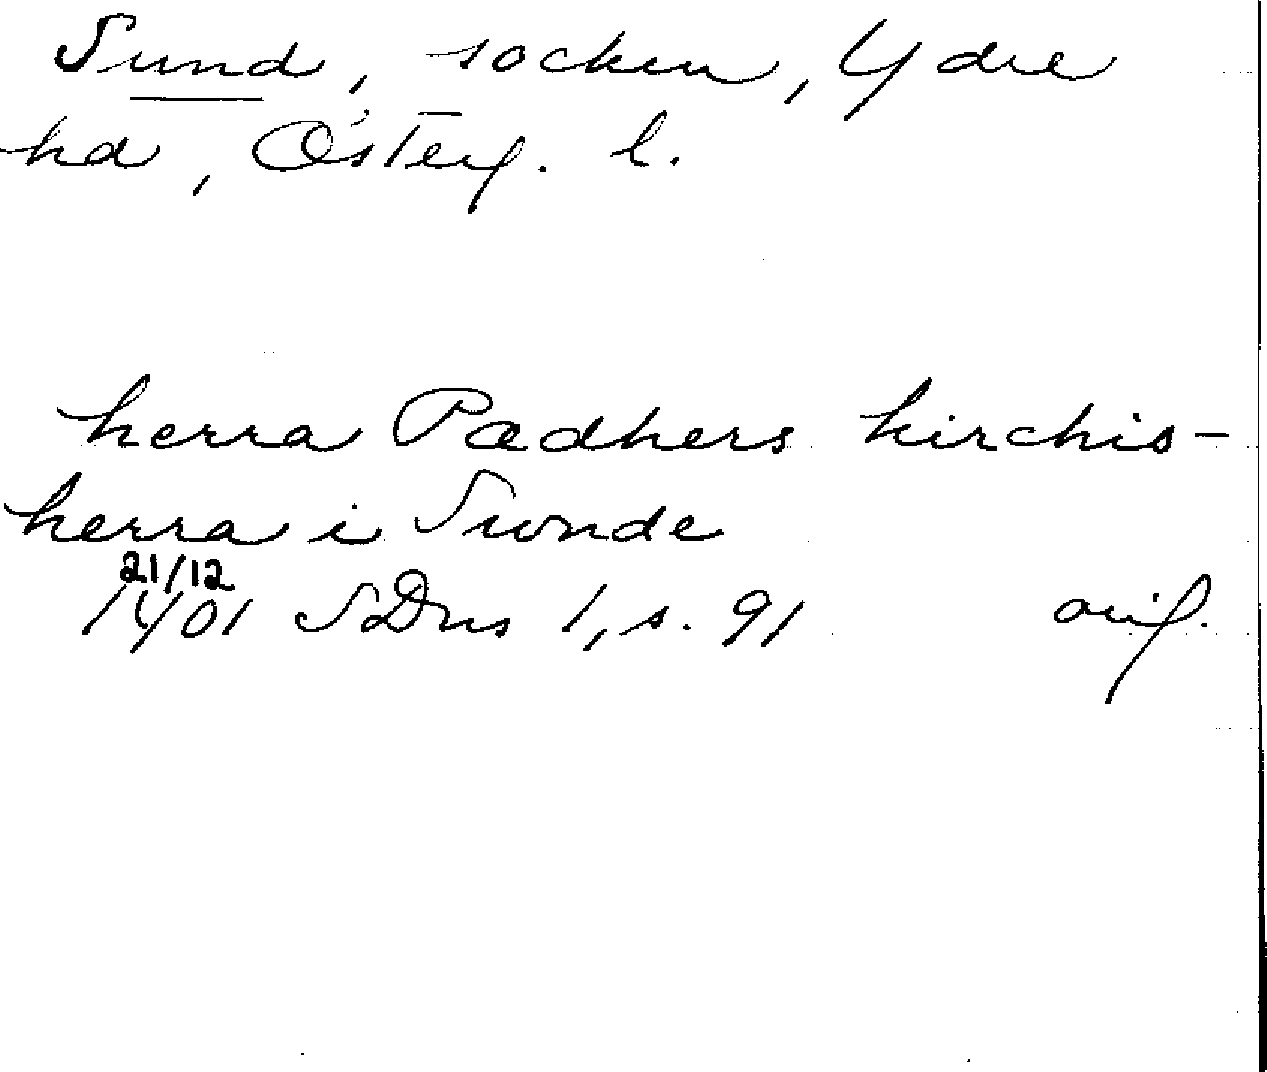 Sund, socken, Ydre
hd, Österg. l.
herra Pædhers kirchis-
herra i Swnde
21/12
1401 SDns 1, s. 91 orig.